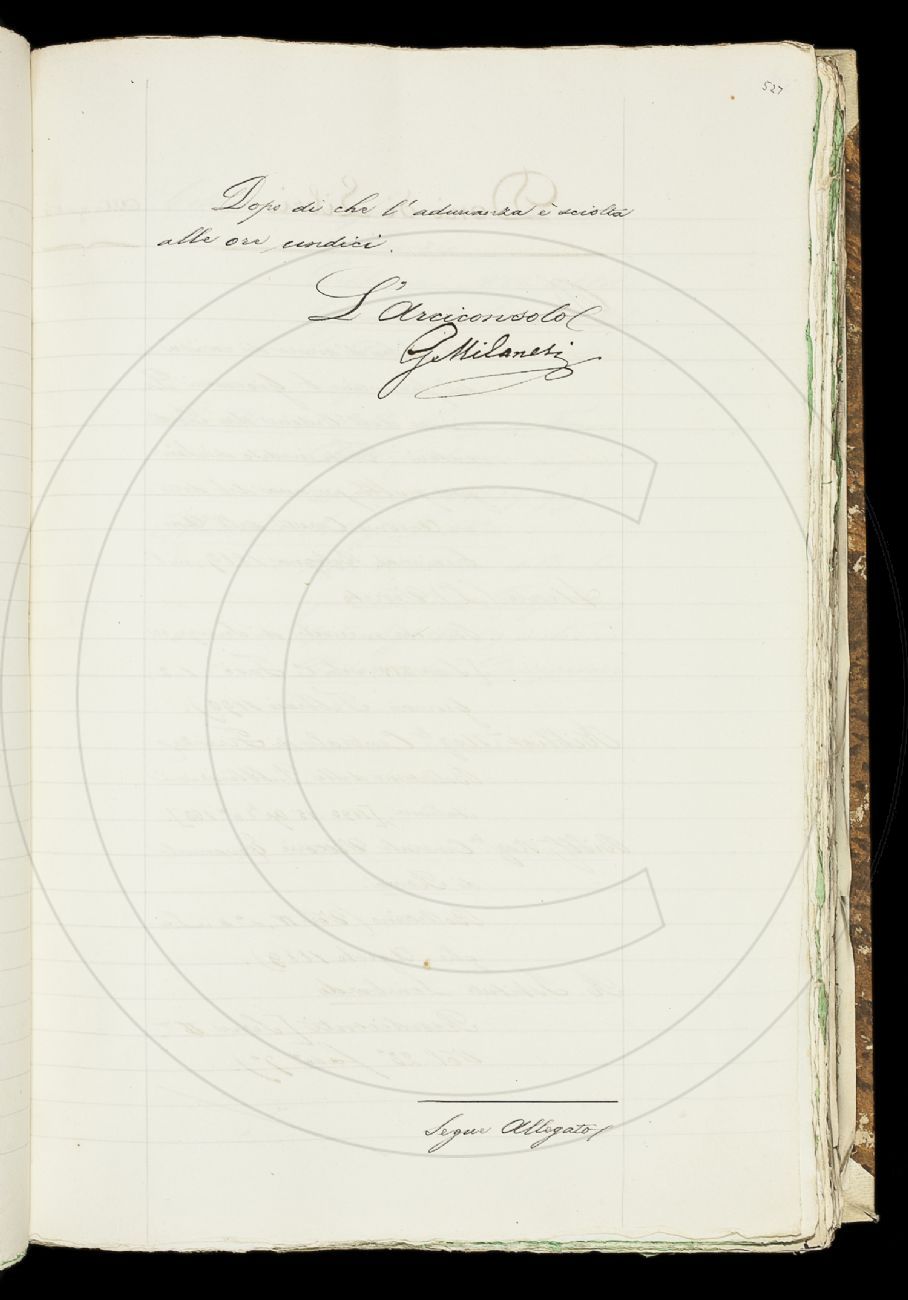 527
Dopo di che l'adunanza è sciolta
alle ore undici.
L'Arciconsolo
G. Milanesi
Segue Allegato